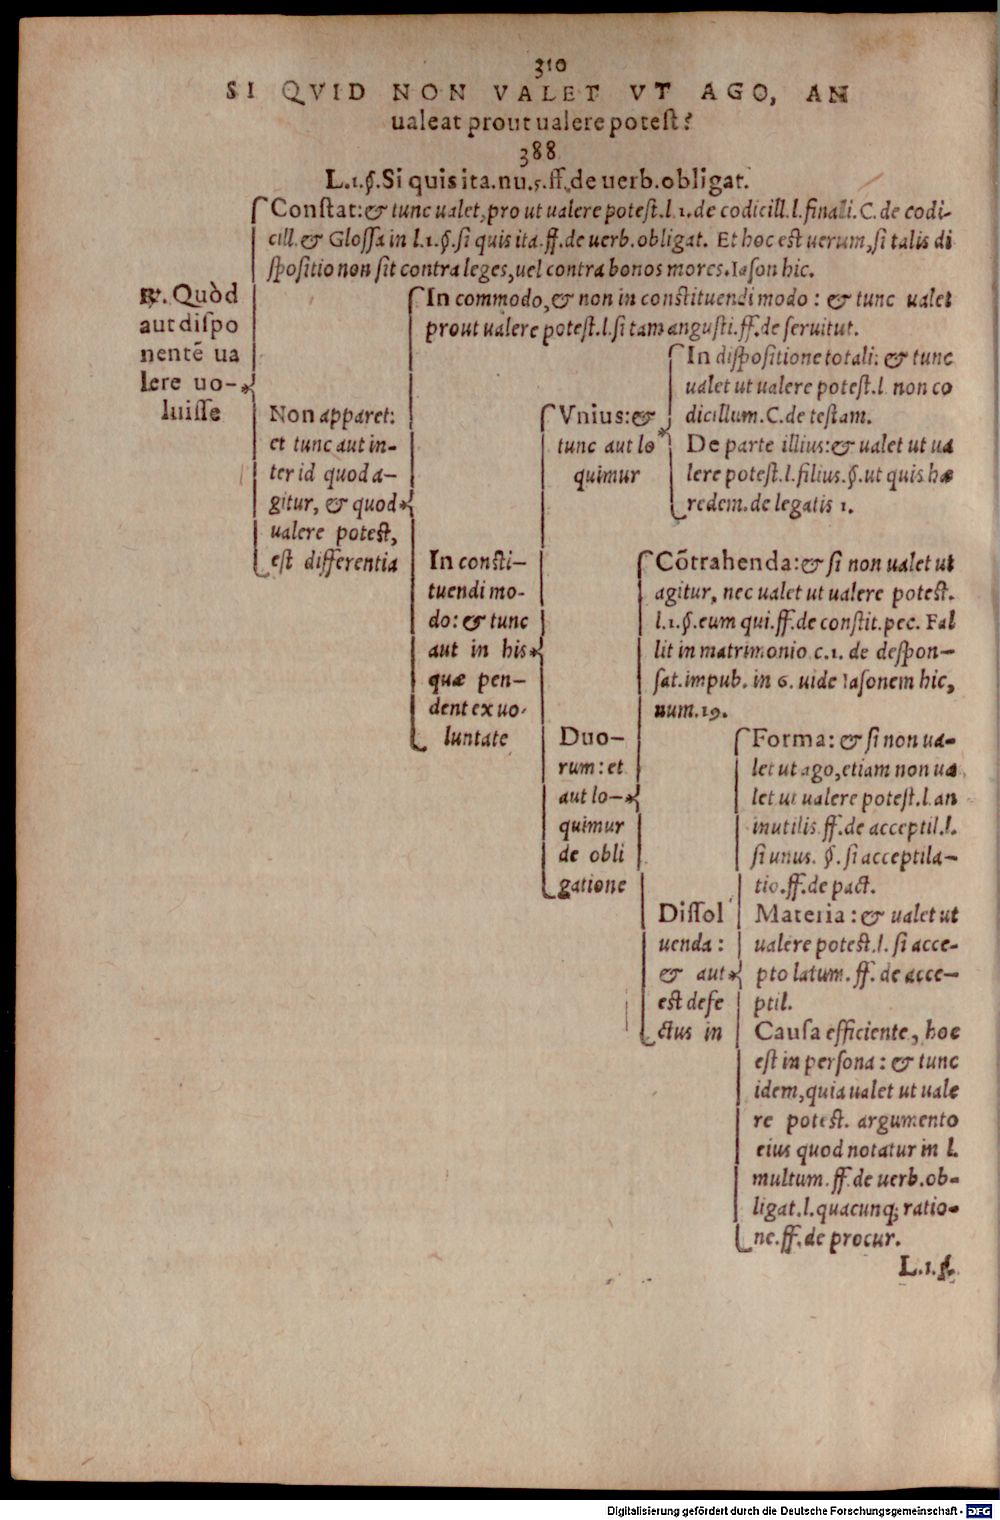 310
SI QVID NON VALET VT AGO, AN
ualeat prout ualere potest?
388
L.1.§.Si quis ita.nu.5.ff.de uerb.obligat.
Constat:& tunc ualet,pro ut ualere potest.l.1.de codicill.l.finali.C.de codi-
cill.& Glossa in l.1.§.si quis ita.ff.de uerb.obligat. Et hoc est uerum,si talis di
spositio non sit contra leges,uel contra bonos mores.Iason hic.
℟. Quòd
aut dispo
nentē ua
lere uo-
luisse
Non apparet:
et tunc aut in-
ter id quod a-
gitur, & quod
ualere potest,
est differentia
In commodo,& non in constituendi modo : & tunc ualet
prout ualere potest.l.si tam angusti.ff.de seruitut.
In consti-
tuendi mo-
do: & tunc
aut in his
quæ pen-
dent ex uo-
luntate
Vnius:&
tunc aut lo
quimur
In dispositione totali: & tunc
ualet ut ualere potest.l. non co
dicillum.C.de testam.
De parte illius:& ualet ut ua
lere potest.l.filius.§.ut quis hæ
redem.de legatis 1.
Duo-
rum: et
aut lo-
quimur
de obli
gatione
Cōtrahenda:& si non ualet ut
agitur, nec ualet ut ualere potest.
l.1.§.eum qui.ff.de constit.pec. Fal
lit in matrimonio c.1. de despon-
sat.impub. in 6. uide Iasonem hic,
num.19.
Dissol
uenda :
& aut
est defe
ctus in
Forma: & si non ua-
let ut ago,etiam non ua
let ut ualere potest.l.an
inutilis.ff.de acceptil.l.
si unus. §. si acceptila-
tio.ff.de pact.
Materia : & ualet ut
ualere potest.l. si acce-
pto latum. ff. de acce-
ptil.
Causa efficiente, hoc
est in persona : & tunc
idem,quia ualet ut uale
re potest. argumento
eius quod notatur in l.
multum.ff.de uerb.ob-
ligat.l.quacunq; ratio-
ne.ff.de procur.
L.1.§.
Digitalisierung gefördert durch die Deutsche Forschungsgemeinschaft - DFG